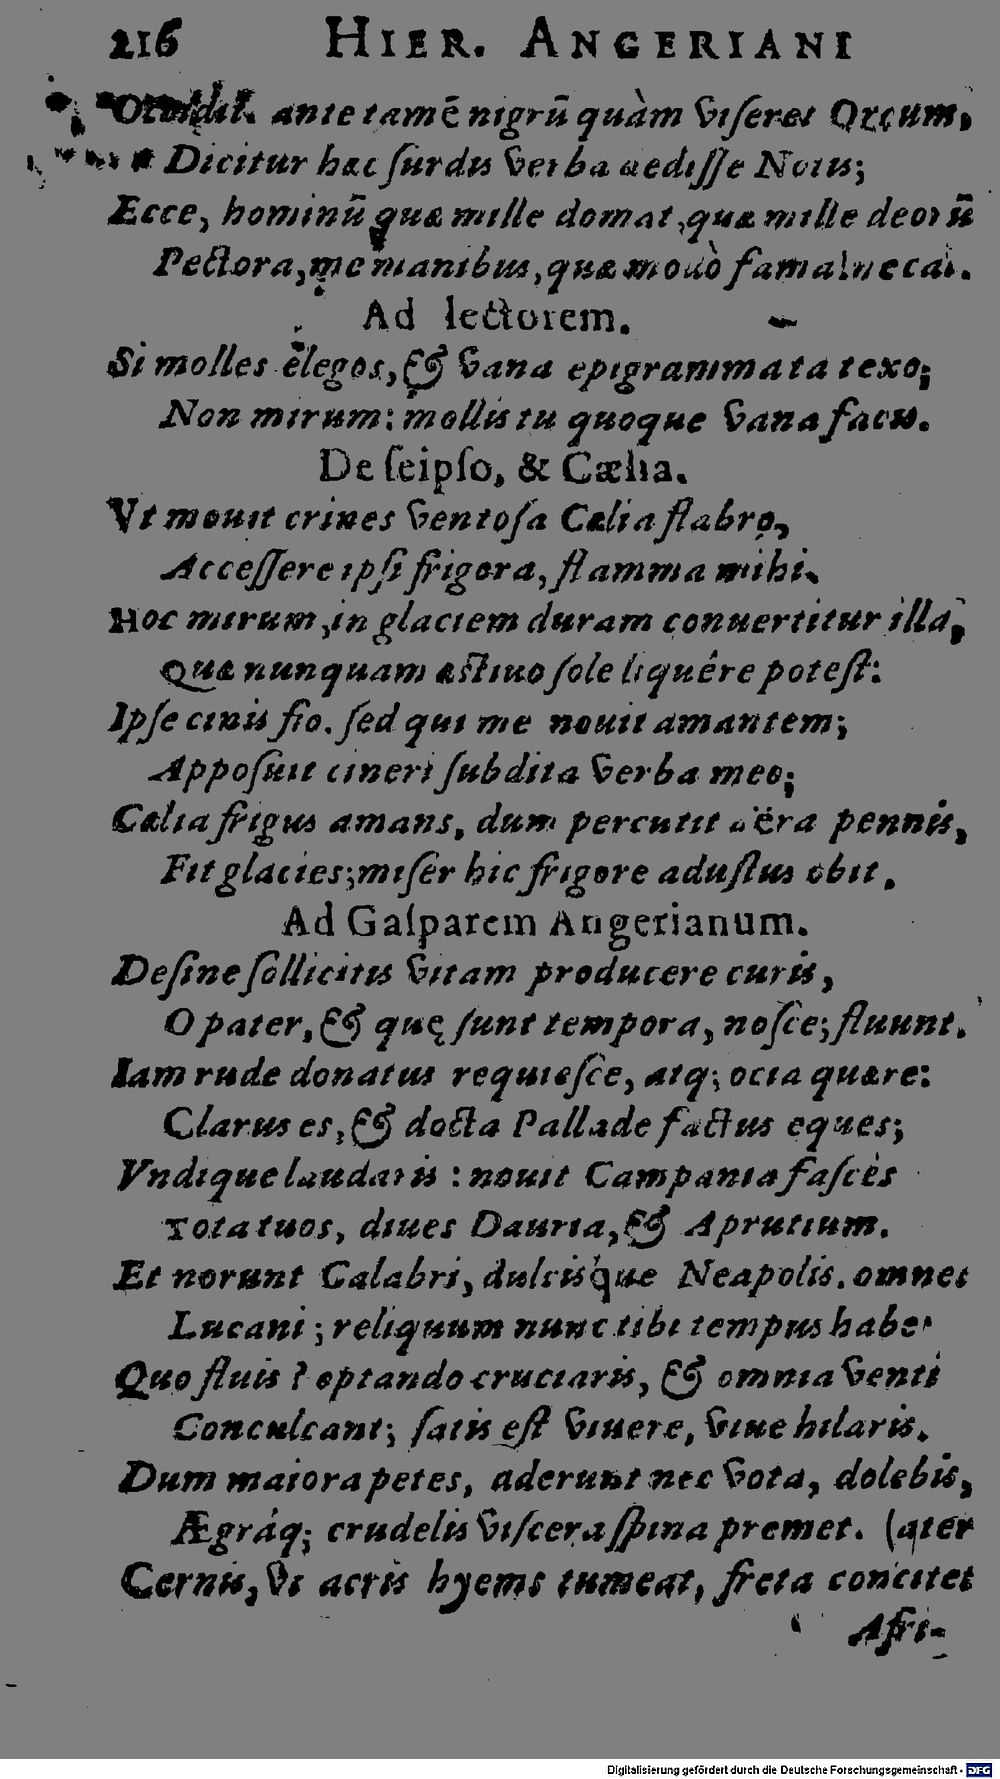 216 HIER. ANGERIANI
Occidit. ante tamē nigrū quàm viseret Orcum,
Dicitur hæc surdis verba dedisse Notis;
Ecce, hominū quæ mille domat, quæ mille deorū
Pectora, me manibus, quæ modò fama necat.
Ad lectorem.
Si molles elegos, & vana epigrammata texo;
Non mirum: mollis tu quoque vana facis.
De seipso, & Cælia.
Vt mouit crines ventosa Cælia flabro,
Accessere ipsi frigora, flamma mihi.
Hoc mirum, in glaciem duram conuertitur illa,
Quæ nunquam æstiuo sole liquêre potest:
Ipse cinis fio. sed qui me nouit amantem;
Apposuit cineri subdita verba meo;
Cælia frigus amans, dum percutit aëra pennis,
Fit glacies; miser hic frigore adustus obit.
Ad Gasparem Angerianum.
Desine sollicitis vitam producere curis,
O pater, & quę sunt tempora, nosce; fluunt.
Iam rude donatus requiesce, atq; ocia quære:
Clarus es, & docta Pallade factus eques;
Vndique laudaris: nouit Campania fascès
Tota tuos, diues Dauria, & Aprutium.
Et norunt Calabri, dulcisque Neapolis. omnes
Lucani; reliquum nunc tibi tempus habet
Quo fluis? optando cruciaris, & omnia venti
Conculcant; satis est viuere, viue hilaris.
Dum maiora petes, aderunt nec vota, dolebis,
Ægráq; crudelis viscera spina premet. (ater
Cernis, vt acris hyems tumeat, freta concitet
Afri-
Digitalisierung gefördert durch die Deutsche Forschungsgemeinschaft - DFG